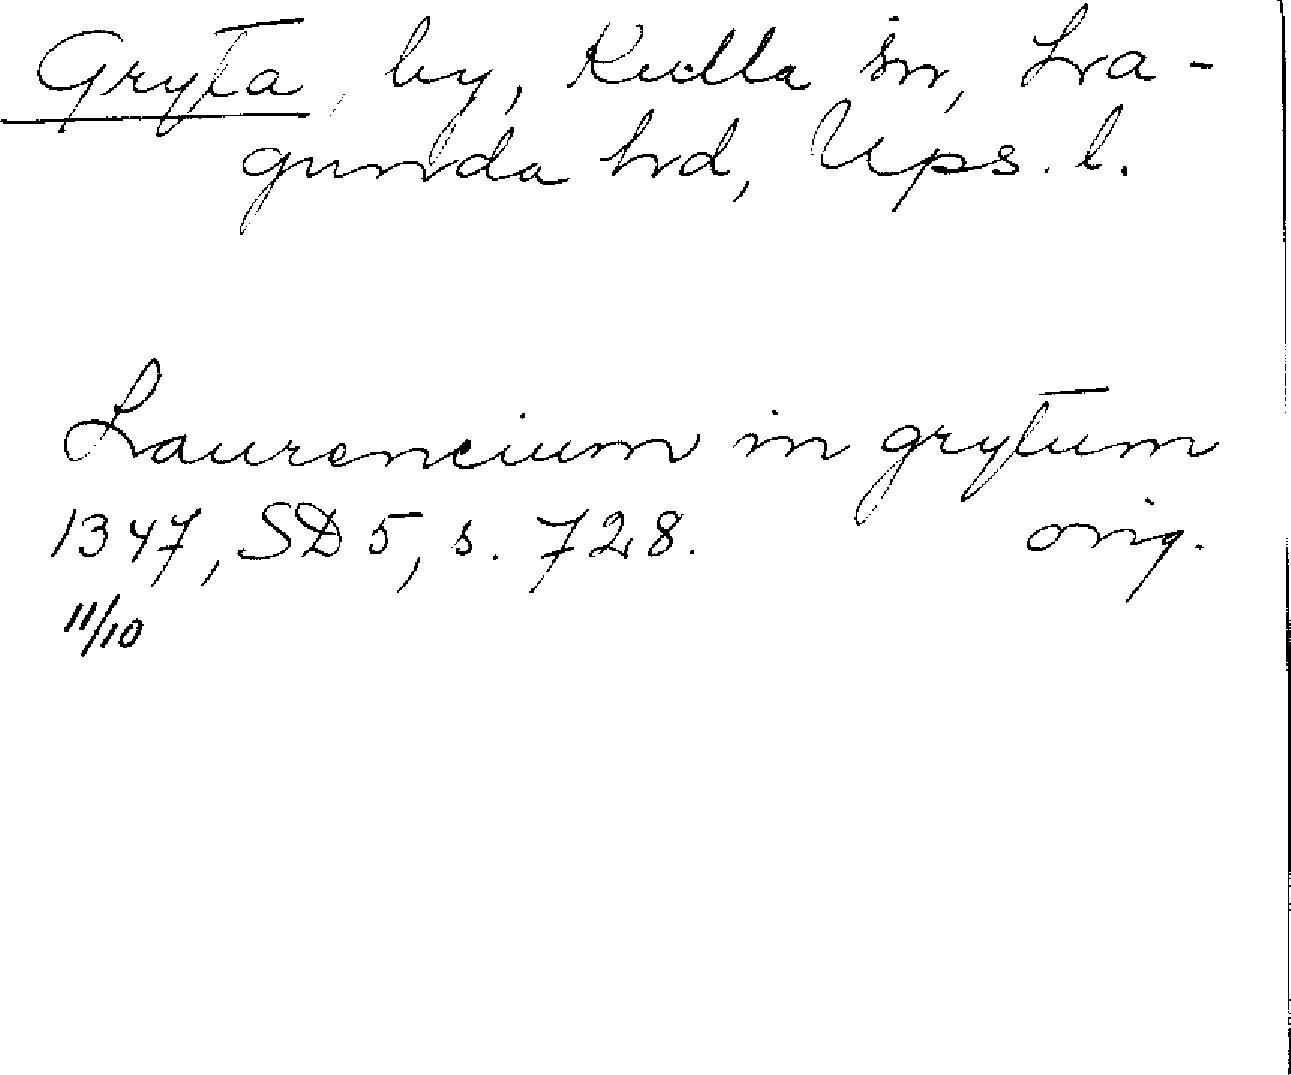 Gryta, by, Kulla sn, La-
gunda hd, Ups. l.
Laurencium in grytum
1347, SD 5, s. 728. orig.
11/10